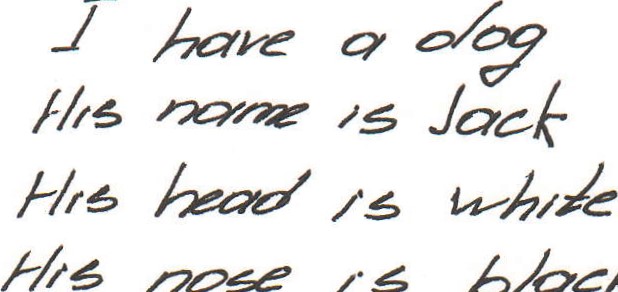 I have a dog
His name is Jack
His head is white
His nose is black